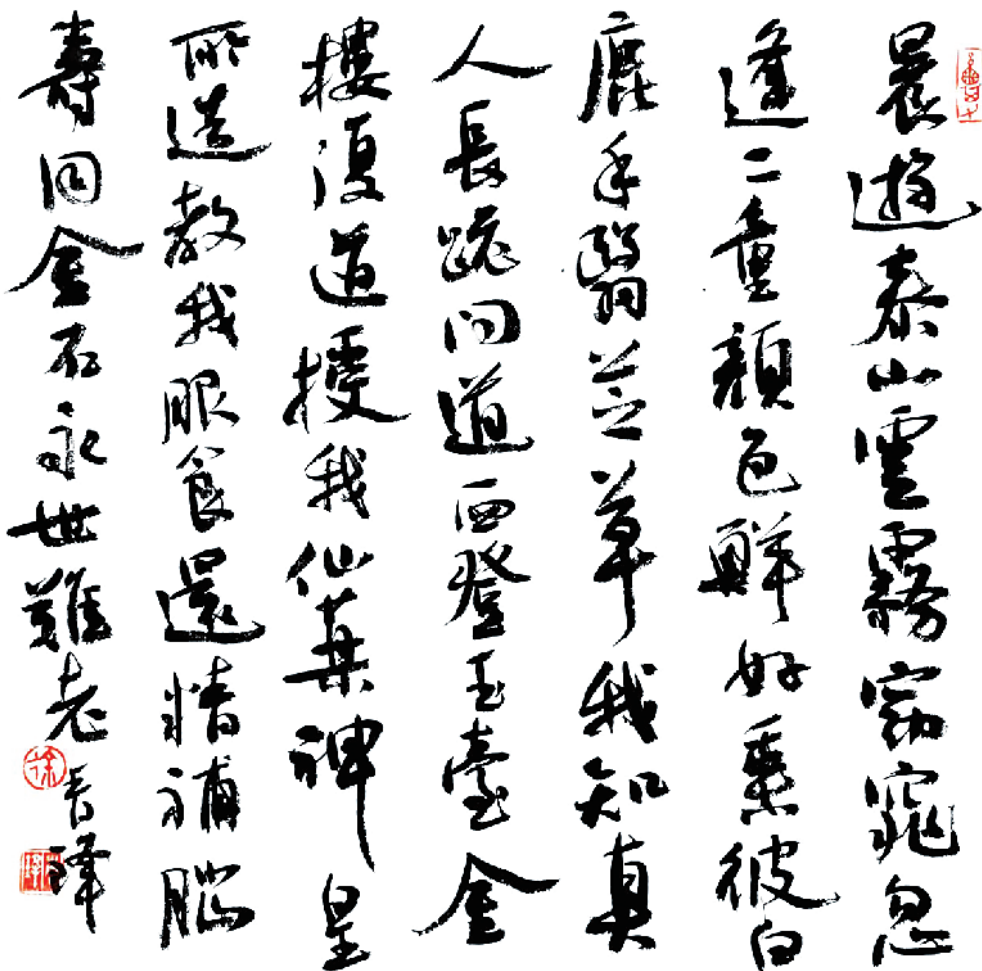 晨遊泰山雲霧窈窕忽
逢二童顏色鮮好乘彼白
鹿手翳芝草我知真
人長跪問道西登玉臺金
樓復道授我仙藥神皇
所造教我服食還精補腦
壽同金石永世難老
徐